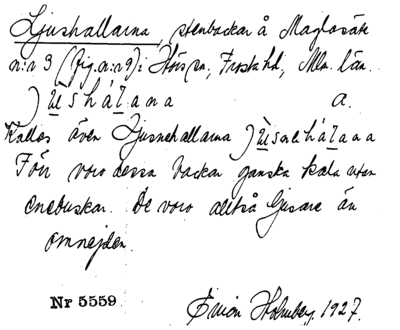 Ljushallarna, stenbackar å Maglasäte
n:r 3 (fig. n:r 9) i Hörs sn, Frosta hd, Mlm. län.
) ùs há l a n a a.
Kallas även Ljusnehallarna ) ùs ne há l a n a
Förr voro dessa backar ganska kala utan
enebuskar. De voro alltså ljusare än
omnejden.
Nr 5559 Holmberg 1927.